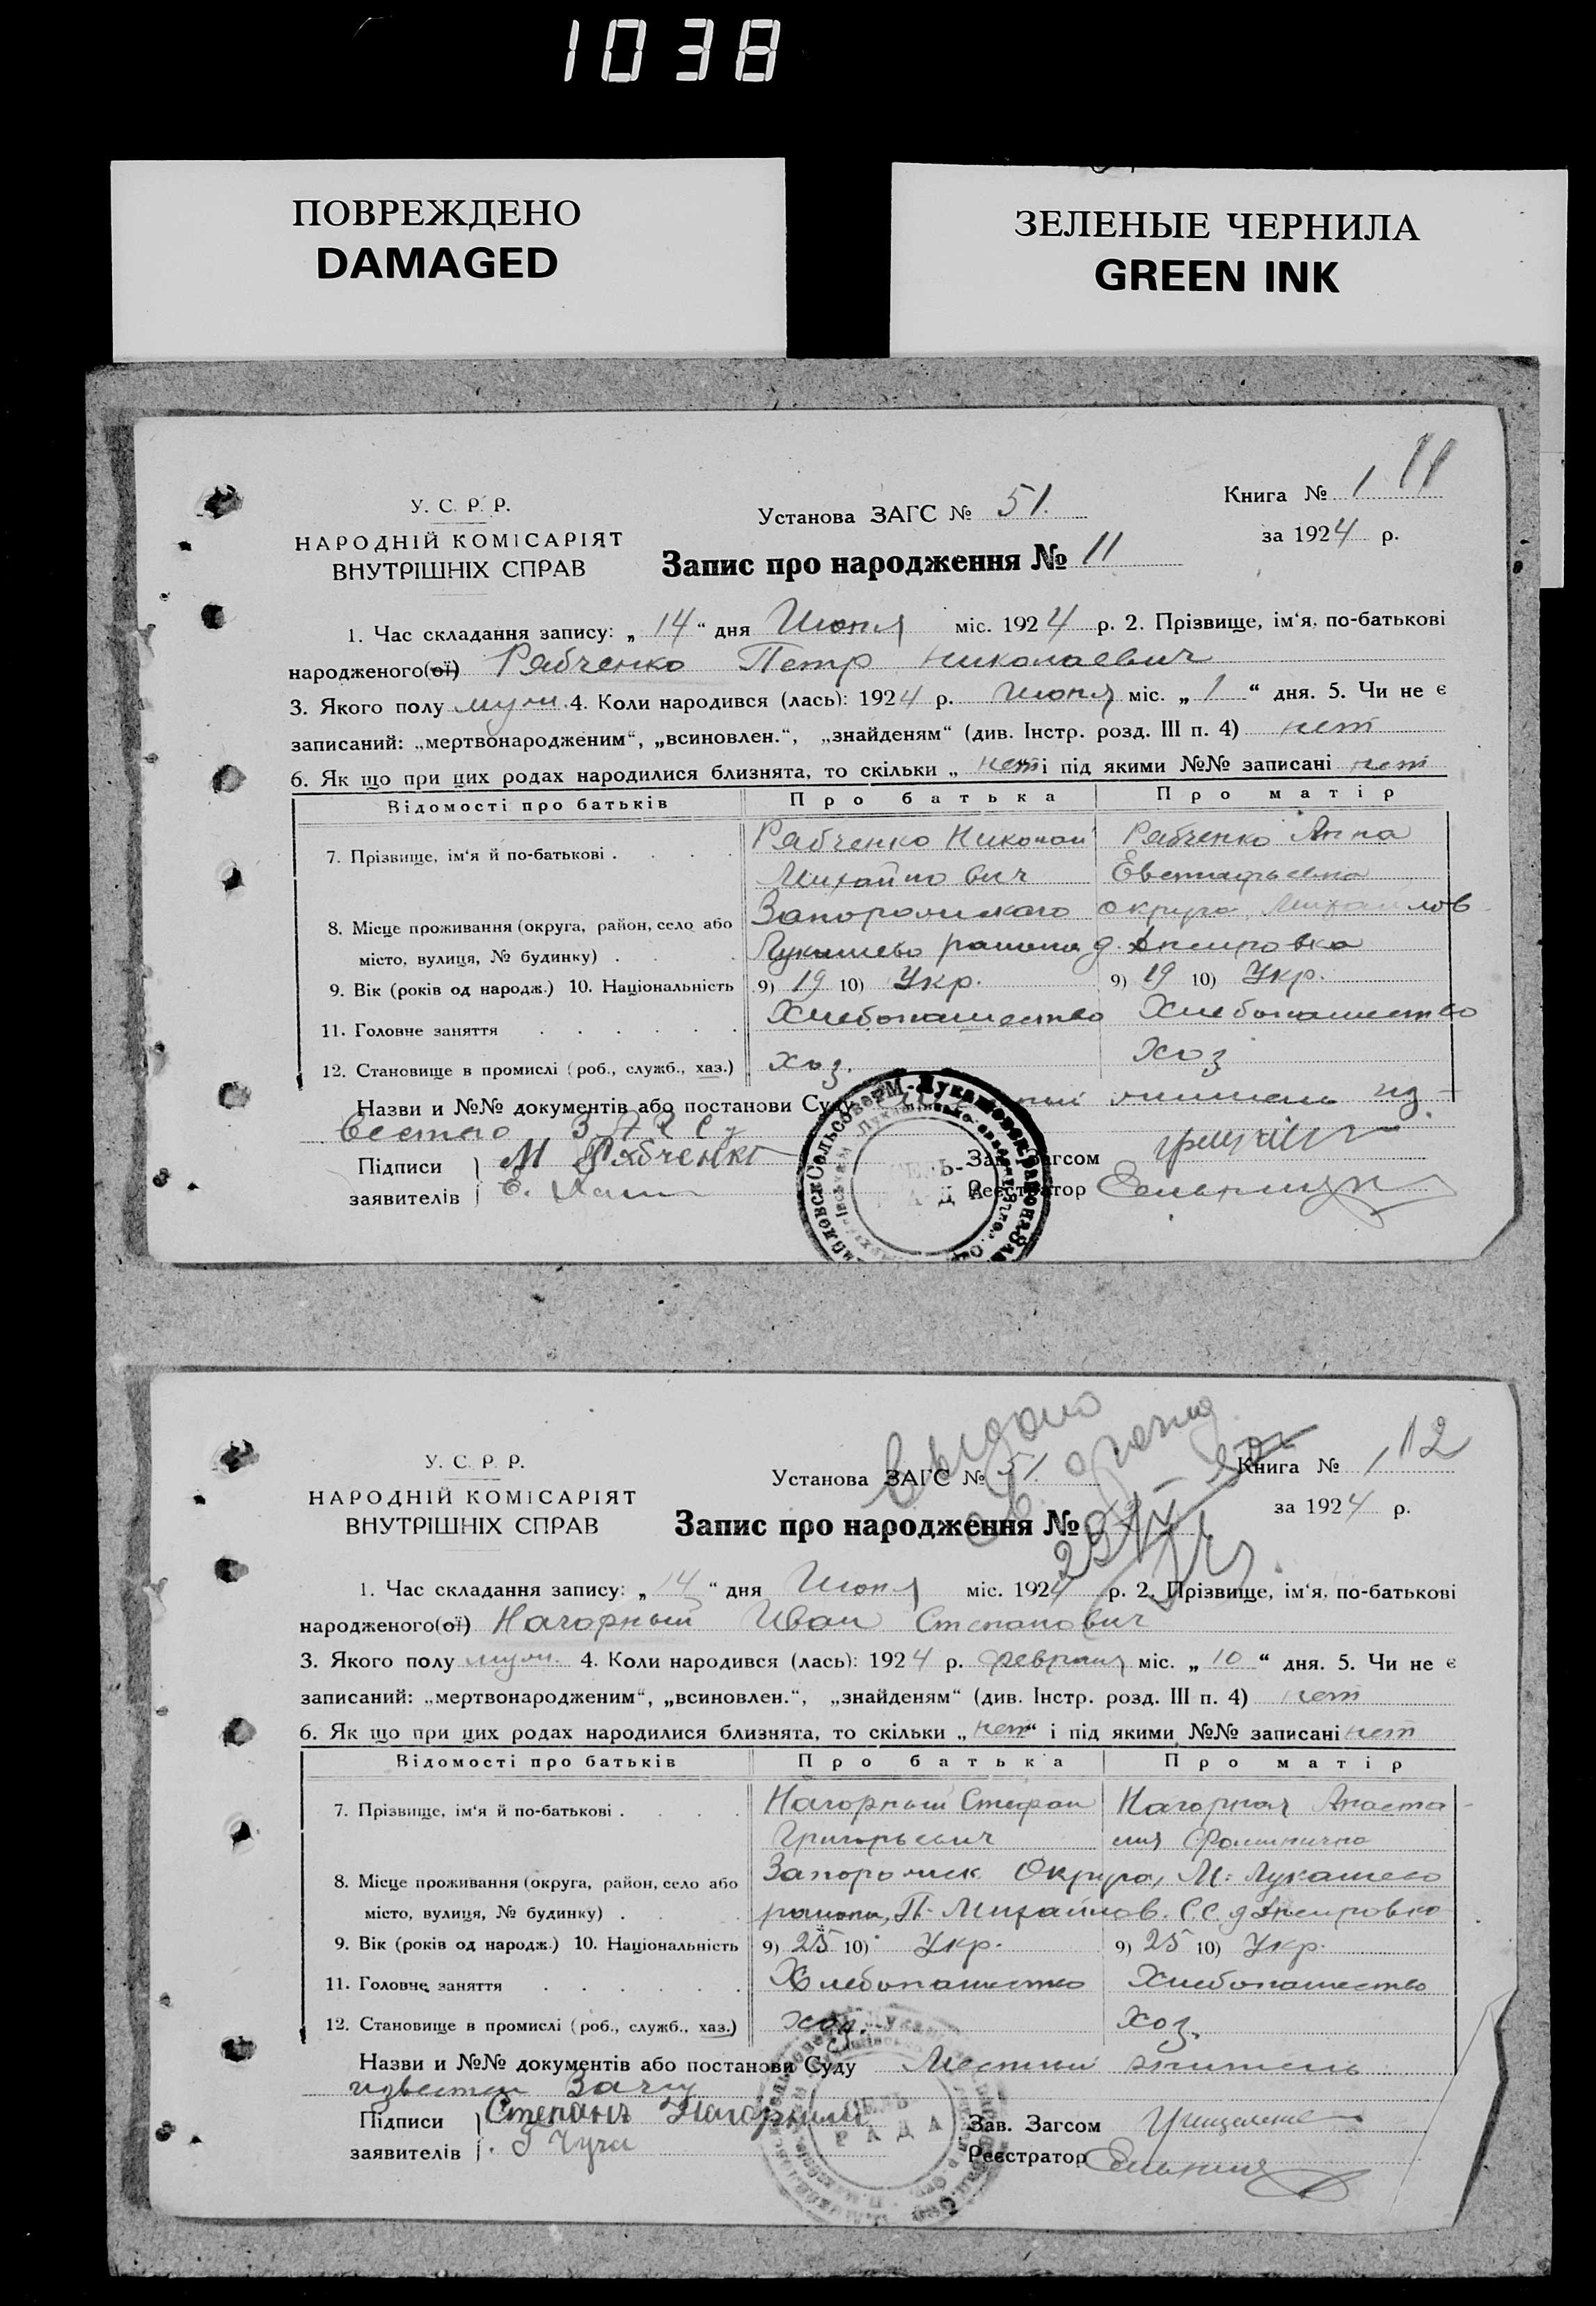 1038
ПОВРЕЖДЕНО
DAMAGED
ЗЕЛЕНЫЕ ЧЕРНИЛА
GREEN INK
11
У. С. Р. Р.
НАРОДНІЙ КОМІСАРІЯТ
ВНУТРІШНІХ СПРАВ
Установа ЗАГС № 51.
Книга № 1
за 1924 р.
Запис про народження № 11
1. Час складання запису: „ 14 “ дня Июня міс. 1924 р. 2. Прізвище, ім‘я, по-батькові
народженого(ої) Рябченко Петр Николаевич
3. Якого полу муж. 4. Коли народився (лась): 1924 р. Июня міс. „ 1 “ дня. 5. Чи не є
записаний: „мертвонародженим“, „всиновлен.“, „знайденям“ (див. Інстр. розд. III п. 4) нет
6. Як що при цих родах народилися близнята, то скільки „ нет “ і під якими №№ записані нет
Відомості про батьків Про батька Про матір
7. Прізвище, ім‘я й по-батькові . . . . Рябченко Николай Рябченко Анна
Михайлович Евстафьевна
8. Місце проживання (округа, район, село або Запорожского округа, Михайлов
місто, вулиця, № будинку) . . Лукашево района д. Днепровка
9. Вік (років од народж.) 10. Національність 9) 19 10) Укр. 9) 19 10) Укр.
11. Головне заняття . . . . . . Хлебопашество Хлебопашество
12. Становище в промислі (роб., служб., хаз.) хоз. хоз
Назви и №№ документів або постанови Суду житель из-
вестно ЗАГСу
Підписи М Рябченко Зав. Загсом
заявителів Е. Реєстратор
СЕЛЬ-
РАДА
12
Выдано
У. С. Р. Р.
НАРОДНІЙ КОМІСАРІЯТ
ВНУТРІШНІХ СПРАВ
Установа ЗАГС № 51.
Книга № 1
за 1924 р.
Запис про народження №
1. Час складання запису: „ 14 “ дня Июня міс. 1924 р. 2. Прізвище, ім‘я, по-батькові
народженого(ої) Нагорный Иван Степанович
3. Якого полу муж. 4. Коли народився (лась): 1924 р. февраля міс. „ 10 “ дня. 5. Чи не є
записаний: „мертвонародженим“, „всиновлен.“, „знайденям“ (див. Інстр. розд. III п. 4) нет
6. Як що при цих родах народилися близнята, то скільки „ нет “ і під якими №№ записані нет
Відомості про батьків Про батька Про матір
7. Прізвище, ім‘я й по-батькові . . . . Нагорный Стефан Нагорная Анаста-
Григорьевич сия
8. Місце проживання (округа, район, село або Запорожск. Округа, М: Лукашево
місто, вулиця, № будинку) . . района, П-Михайлов. С.С. д Днепровка
9. Вік (років од народж.) 10. Національність 9) 25 10) Укр. 9) 25 10) Укр.
11. Головне заняття . . . . . . Хлебопашество Хлебопашество
12. Становище в промислі (роб., служб., хаз.) хоз. хоз.
Назви и №№ документів або постанови Суду Местный житель
известен Загсу
Підписи Степанъ Нагорный Зав. Загсом
заявителів Реєстратор
СЕЛЬ
РАДА